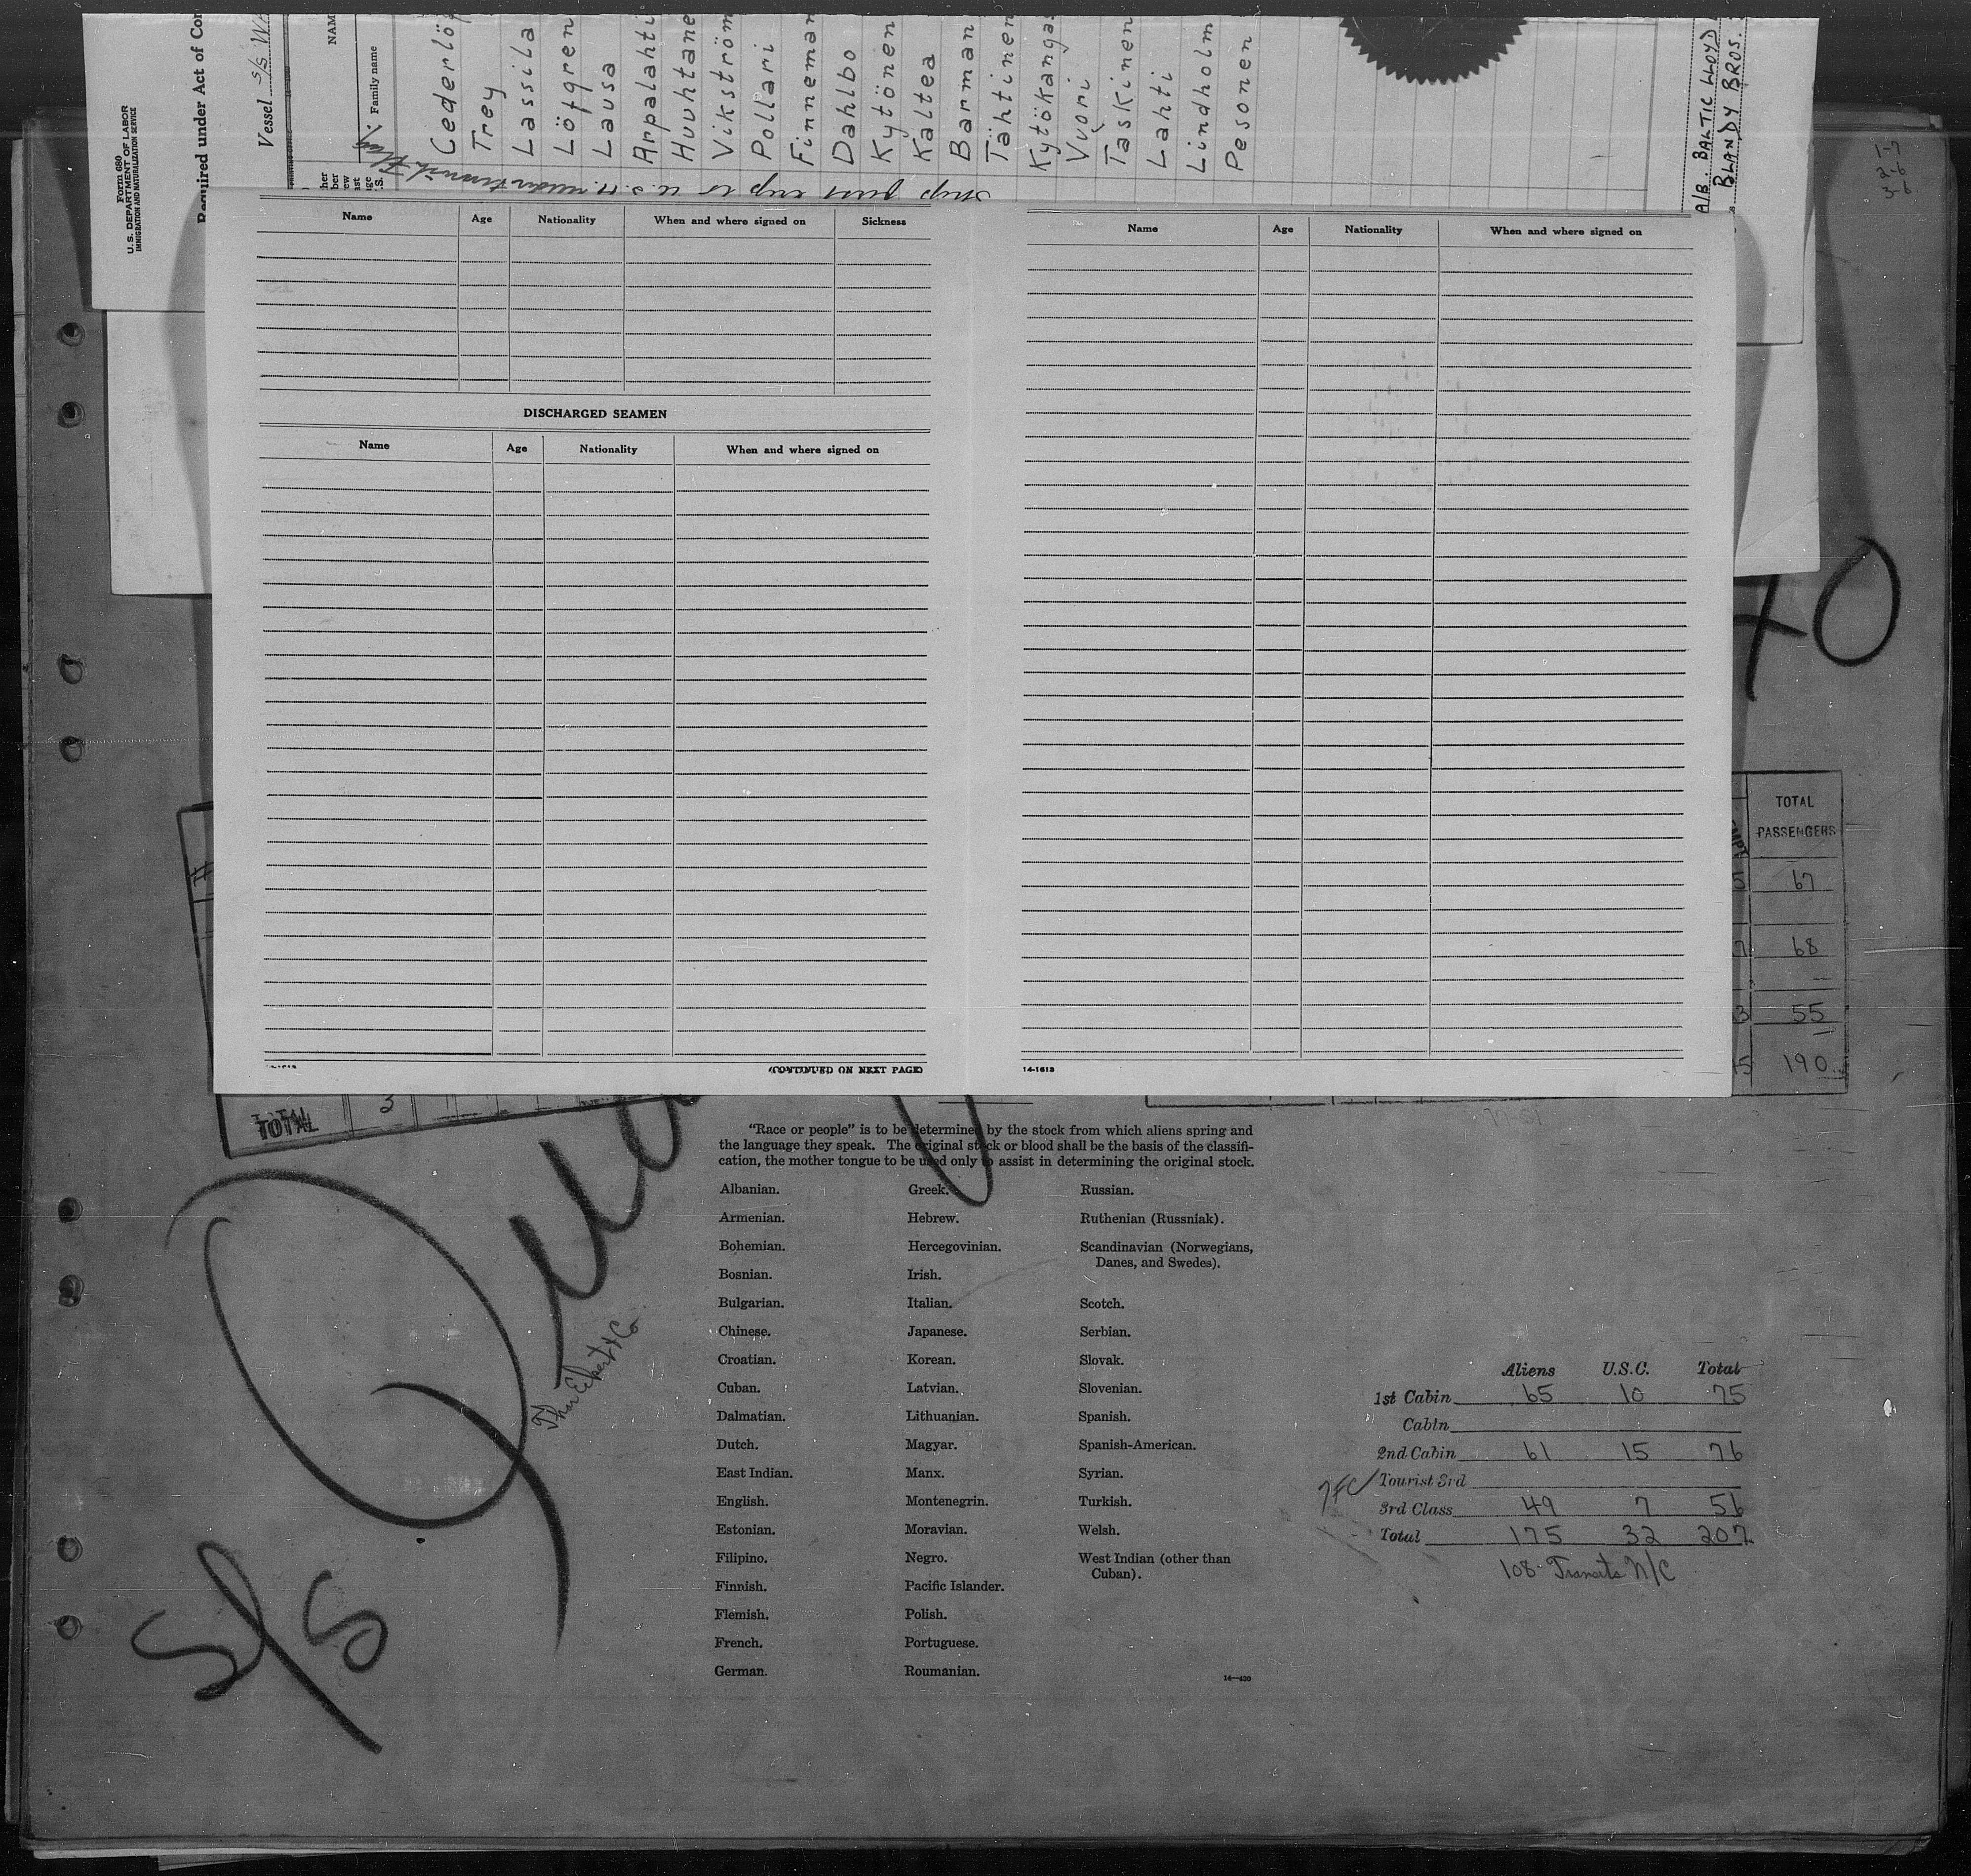 Form 680
U.S. DEPARTMENT OF LABOR
IMMIGRATION AND NATURALIZATION SERVICE
Required under Act of Con
Vessel S/S
NAM
Family name
Cederlöf
Trey
Lassila
Löfgren
Lausa
Arpalahti
Huuhtane
Vikström
Pollari
Finneman
Dahlbo
Kytönen
Kaltea
Barman
Tähtinen
Kytökangas
Vuori
Taskinen
Lahti
Lindholm
Pesonen
A/B. BALTIC LLOYD
BLANDY BROS.
1-7
2-6
3-6
Name Age Nationality When and where signed on Sickness
DISCHARGED SEAMEN
Name Age Nationality When and where signed on
(CONTINUED ON NEXT PAGE)
Name Age Nationality When and where signed on
14-1613
40
TOTAL
PASSENGERS
67
68
55
190
TOTAL 3
"Race or people" is to be determined by the stock from which aliens spring and
the language they speak. The original stock or blood shall be the basis of the classifi-
cation, the mother tongue to be used only to assist in determining the original stock.
Albanian. Greek. Russian.
Armenian. Hebrew. Ruthenian (Russniak).
Bohemian. Hercegovinian. Scandinavian (Norwegians,
Danes, and Swedes).
Bosnian. Irish.
Bulgarian. Italian. Scotch.
Chinese. Japanese. Serbian.
Croatian. Korean. Slovak.
Cuban. Latvian. Slovenian.
Dalmatian. Lithuanian. Spanish.
Dutch. Magyar. Spanish-American.
East Indian. Manx. Syrian.
English. Montenegrin. Turkish.
Estonian. Moravian. Welsh.
Filipino. Negro. West Indian (other than
Cuban).
Finnish. Pacific Islander.
Flemish. Polish.
French. Portuguese.
German. Roumanian.
14—430
S/S
Aliens U.S.C. Total
1st Cabin 65 10 75
Cabin
2nd Cabin 61 15 76
Tourist 3rd
3rd Class 49 7 56
Total 175 32 207
108 Transits N/C